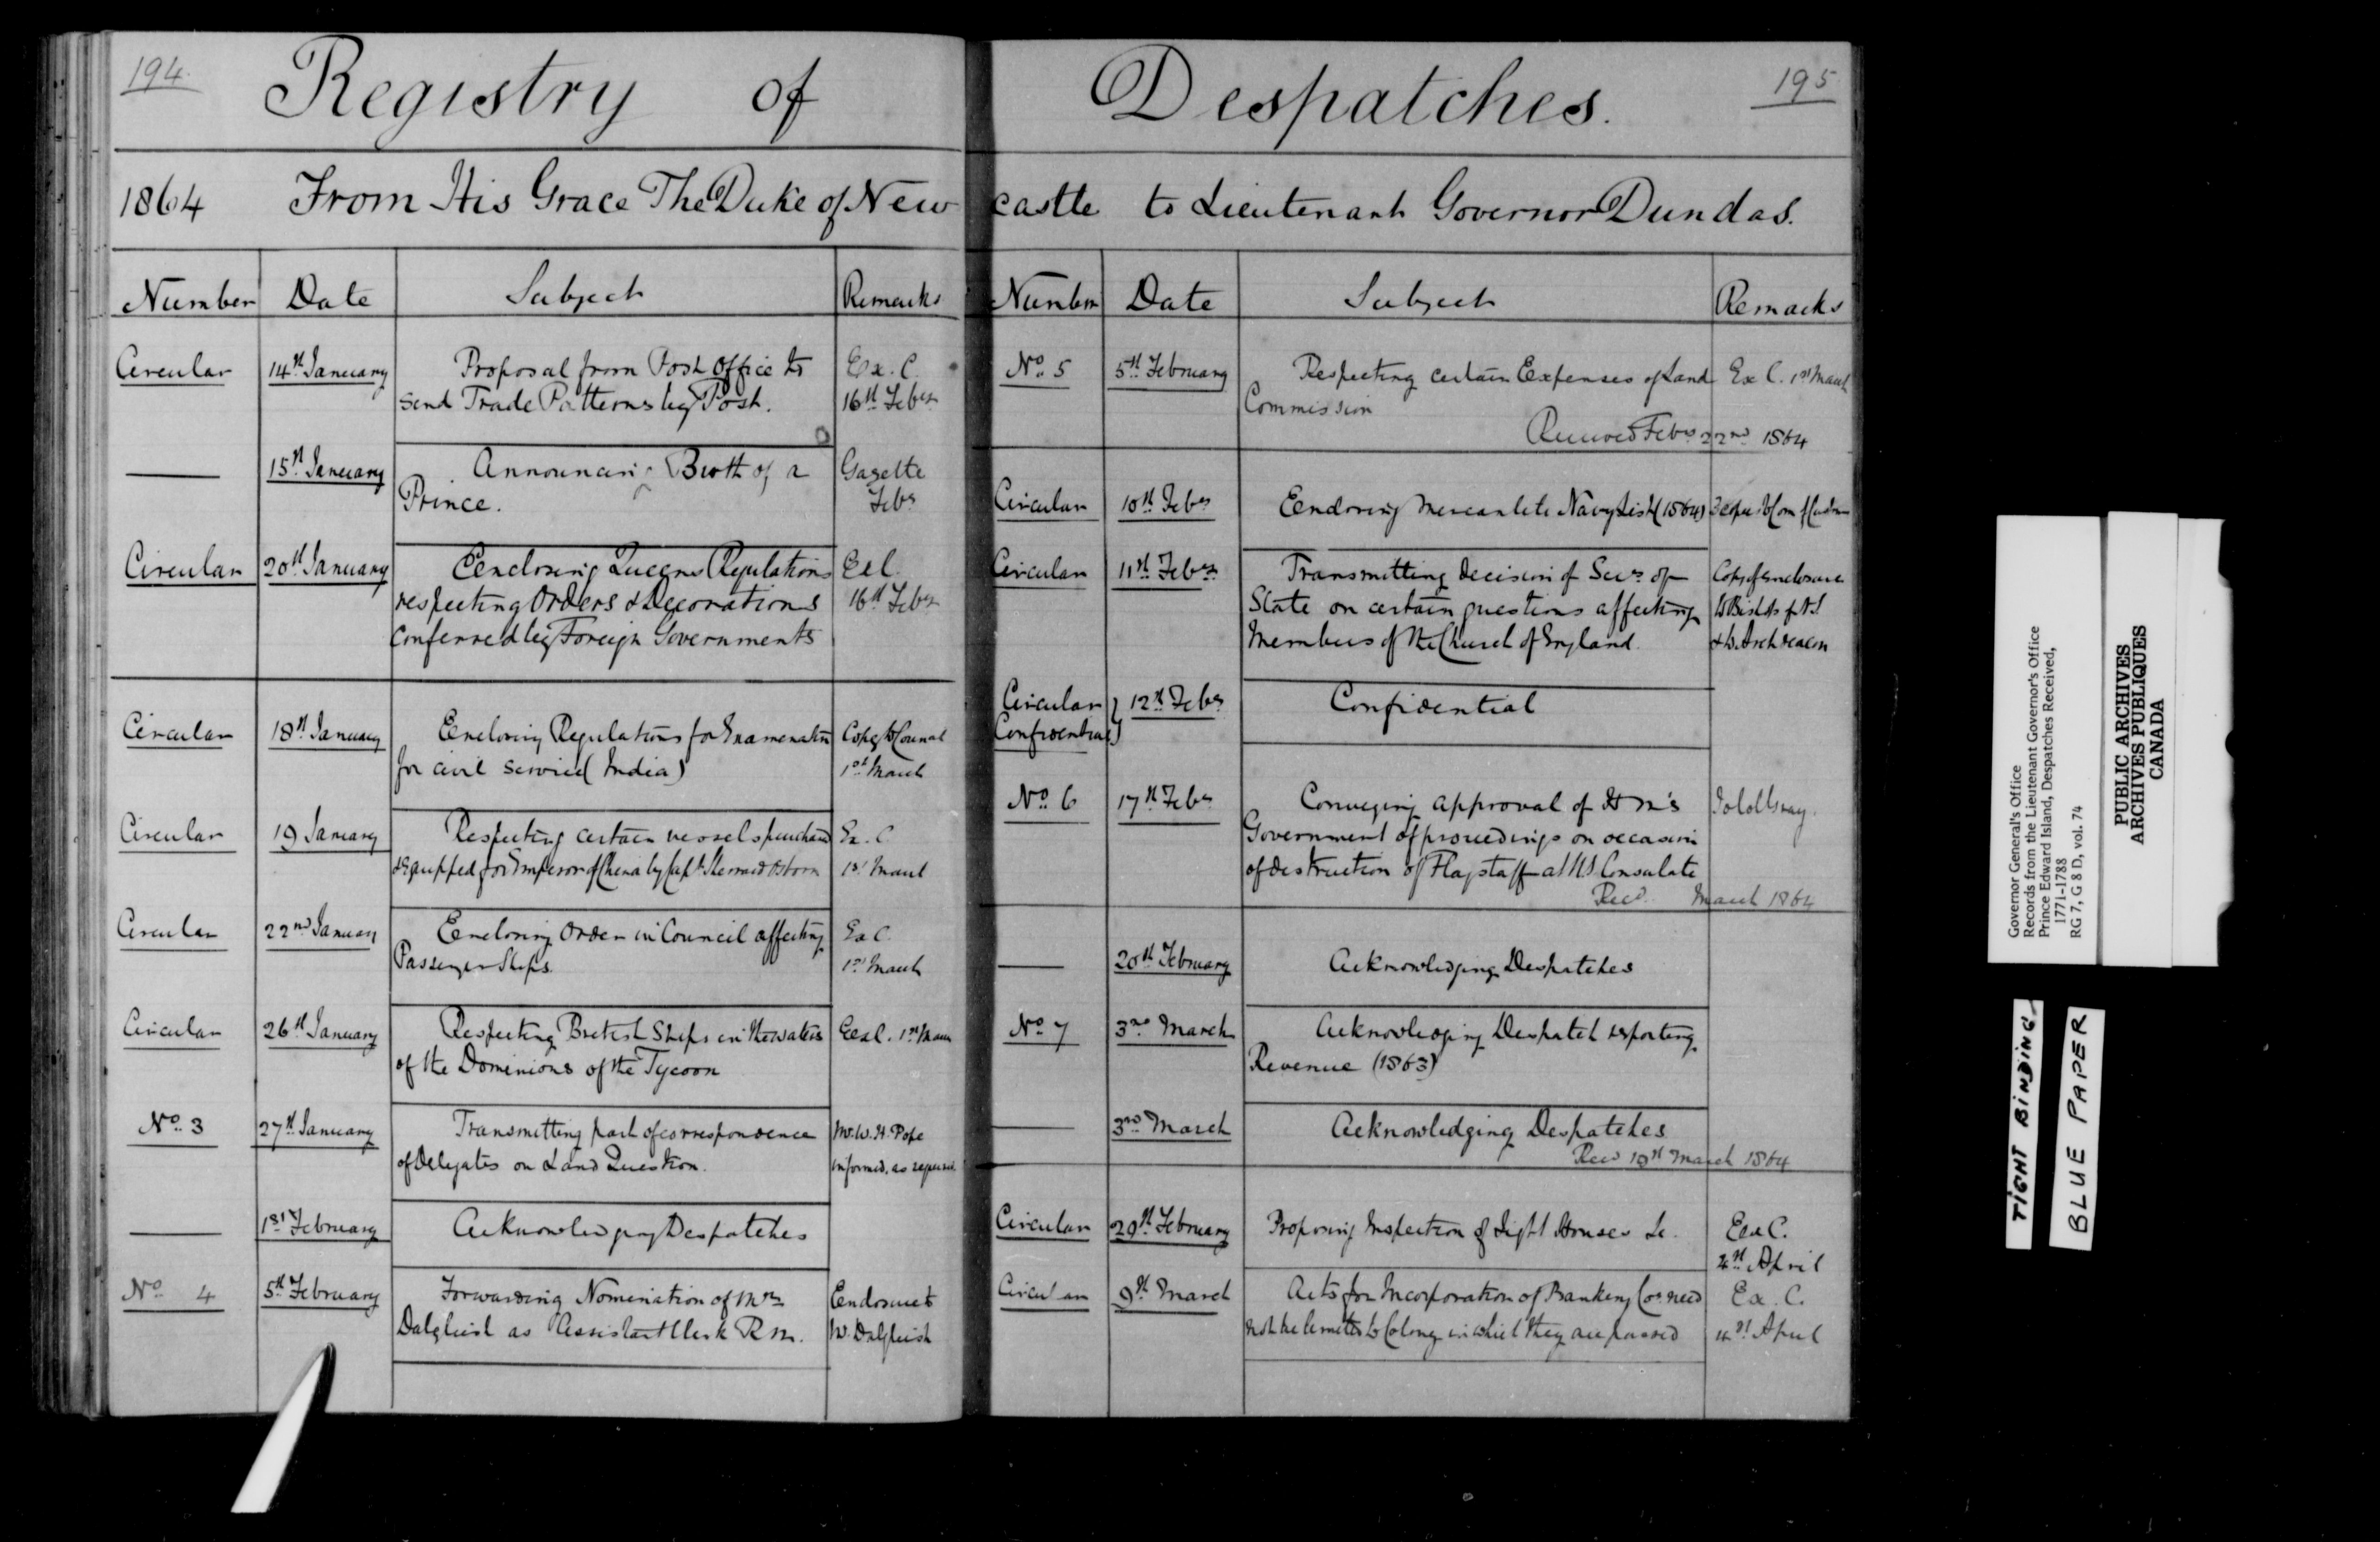 194.
Registry of
1864 From His Grace The Duke of New
Number Date Subject Remarks
Circular 14th January Proposal from Post Office to Ex. C.
send Trade Patterns by Post. 16th Feby
15th January Announcing Birth of a Gazette
Prince. Feby
Circular 20th January Enclosing Queens Regulations Ex C.
respecting Orders & Decorations 16th Feby
conferred by Foreign Governments
Circular 18th January Enclosing Regulations for Examination Copy to Council
for civil service (India) 1st March
Circular 19 January Respecting certain vessels purchased Ex. C
& Equipped for Emperor of China by Capt Sherrard Osborn 1st March
Circular 22nd January Enclosing Order in Council affecting Ex C.
Passenger Ships. 1st March
Circular 26th January Respecting British Ships in the waters Ex C. 1st March
of the Dominions of the Tycoon
No. 3 27th January Transmitting part of correspondence Mr. W. H. Pope
of Delegates on Land Question. informed, as
1st February Acknowledging Despatches
No. 4 5th February Forwarding Nomination of Mr
Dalgleish as Assistant Clerk R. M. W. Dalgleish
195
Despatches.
castle to Lieutenant Governor Dundas.
Number Date Subject Remarks
No. 5 5th February Respecting certain Expenses of Land Ex C. 1st March
Commission
Received Feby 22nd 1864
Circular 10th Feby Enclosing Mercantile Navy List (1864) 3 copies to Com of Customs
Circular 11th Feby Transmitting decision of Secy of Copy of Enclosure
State on certain questions affecting to Bishop of N.S.
Members of the Church of England. & to Archdeacon
Circular 12th Feby Confidential
Confidential
No. 6 17th Feby Conveying approval of H M's
Government of proceedings on occasion
of destruction of Flagstaff at U S Consulate
Recd. March 1864
20th February Acknowledging Despatches
No. 7 3rd March Acknowledging Despatch reporting
Revenue (1863)
3rd March Acknowledging Despatches
Recd 19th March 1864
Circular 29th February Proposing Inspection of Light Houses &c. Ex C.
4th April
Circular 9th March Acts for Incorporation of Banking Cos. need Ex. C.
not be remitted to Colony in which they are passed 4th April
Governor General's Office
Records from the Lieutenant Governor's Office
Prince Edward Island, Despatches Received,
1771-1788
RG 7, G 8 D, vol. 74
PUBLIC ARCHIVES
ARCHIVES PUBLIQUES
CANADA
TIGHT BINDING
BLUE PAPER